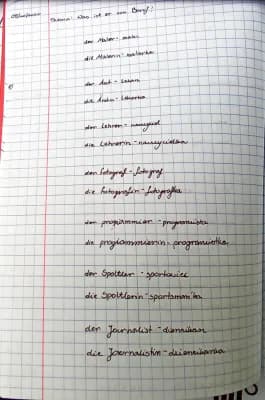 Thema: Was ist er von Beruf?
der Maler - malarz
die Malerin - malarka
der Arzt - lekarz
die Ärztin - lekarka
der Lehrer - nauczyciel
die Lehrerin - nauczycielka
der Fotograf - fotograf
die Fotografin - fotografka
der programmier - programista
die programmiererin - programistka
der Sportler - sportowiec
die Sportlerin - sportsmenka
der Journalist - dziennikarz
die Journalistin - dziennikarka